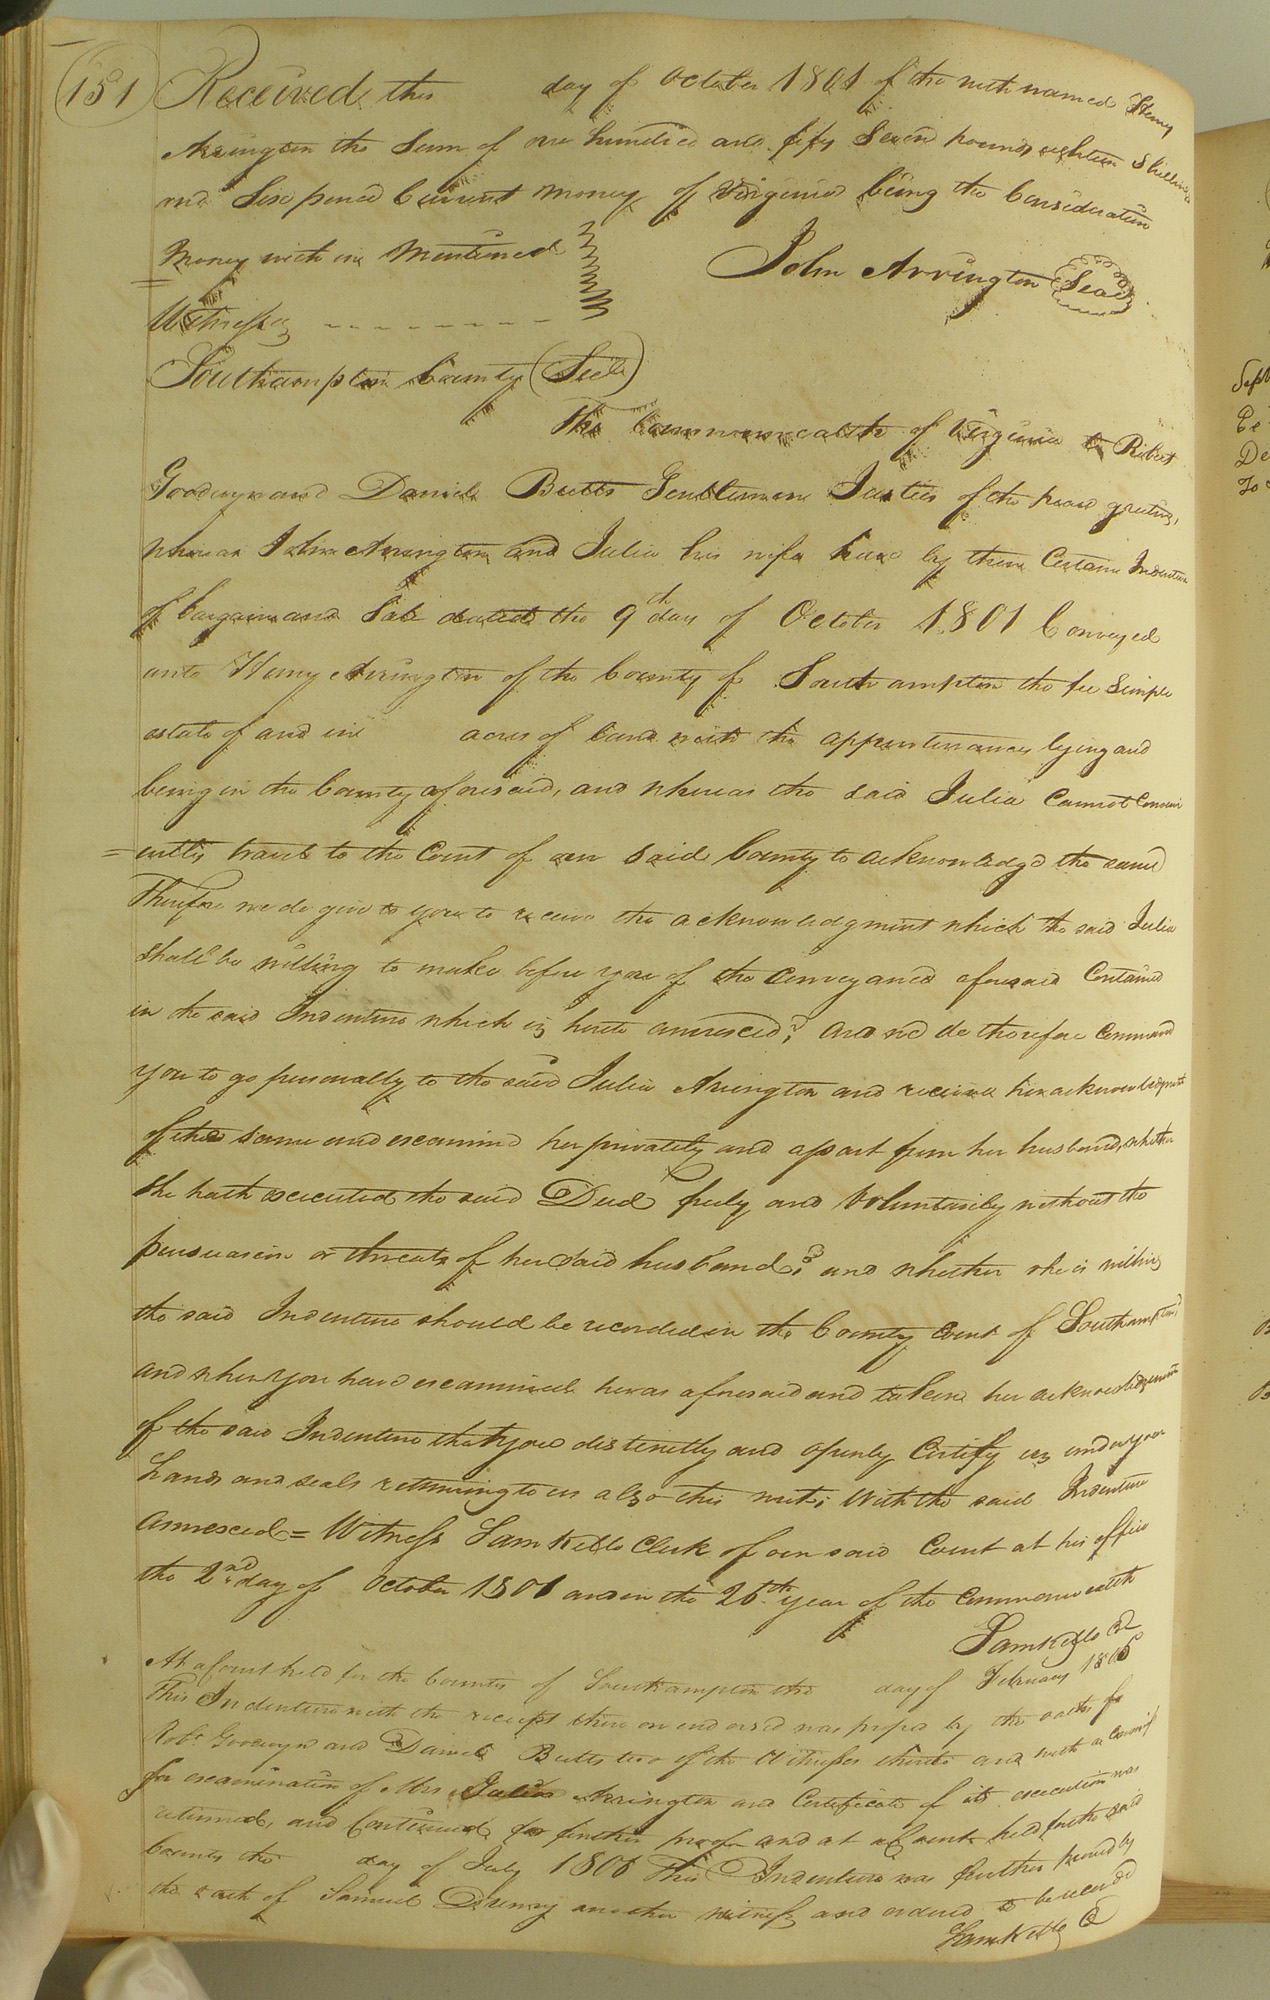 151 Received this day of October 1801 of the with named Henry
Arrington the Sum of one hundred and fifty Seven pounds eighteen Shillings
and Six pence Current money of Virginia being the Consideration
Money with in Mentioned
John Arrington Seal
Witness
Southampton County (Sct)
The Commonwealth of Virginia to Robert
Goodwyn and Daniel Butts Gentlemen Justices of the peace greeting,
whereas John Arrington and Julia his wife have by their Certain Indenture
of bargain and Sale dated the 9th day of October 1801 Conveyed
unto Henry Arrington of the County of Southampton the fee Simple
estate of and in acres of land with the appurtenances lying and
being in the County aforesaid, and whereas the said Julia Cannot Conveni
=ently travel to the Court of our said County to acknowledge the same
Therefore we do give to you to receive the acknowledgment which the said Julia
shall be willing to make before you of the Conveyance aforesaid Contained
in the said Indenture which is hereto annexed; and we do therefore Command
you to go personally to the said Julia Arrington and receive her acknowledgment
of the same and examine her privately and apart from her husband, whether
She hath executed the said Deed freely and Voluntarily without the
persuasion or threats of her said husband; and whether she is willing
the said Indenture should be recorded in the County Court of Southampton;
and when you have examined her as aforesaid and taken her acknowledgement
of the said Indenture that you distinctly and openly Certify us under your
hands and seals returning to us also this writ; With the said Indenture
annexed = Witness Sam Kello Clerk of our said Court at his office
the 2nd day of October 1801 and in the 26th year of the Commonwealth
Sam Kello Cl
At a Court held for the County of Southampton the day of February 1806
This Indenture with the receipt there on endorsed was proved by the oaths of
Robt Goodwyn and Daniel Butts two of the Witnesses thereto and with a Commis
for examination of Mrs Julia Arrington and Certificate of its execution was
returned, and Continued for further proof and at a Court held for the said
County the day of July 1806 This Indenture was further proved by
the oath of Samuel Drewry another witness and ordered to be recorded
Sam Kello Cl